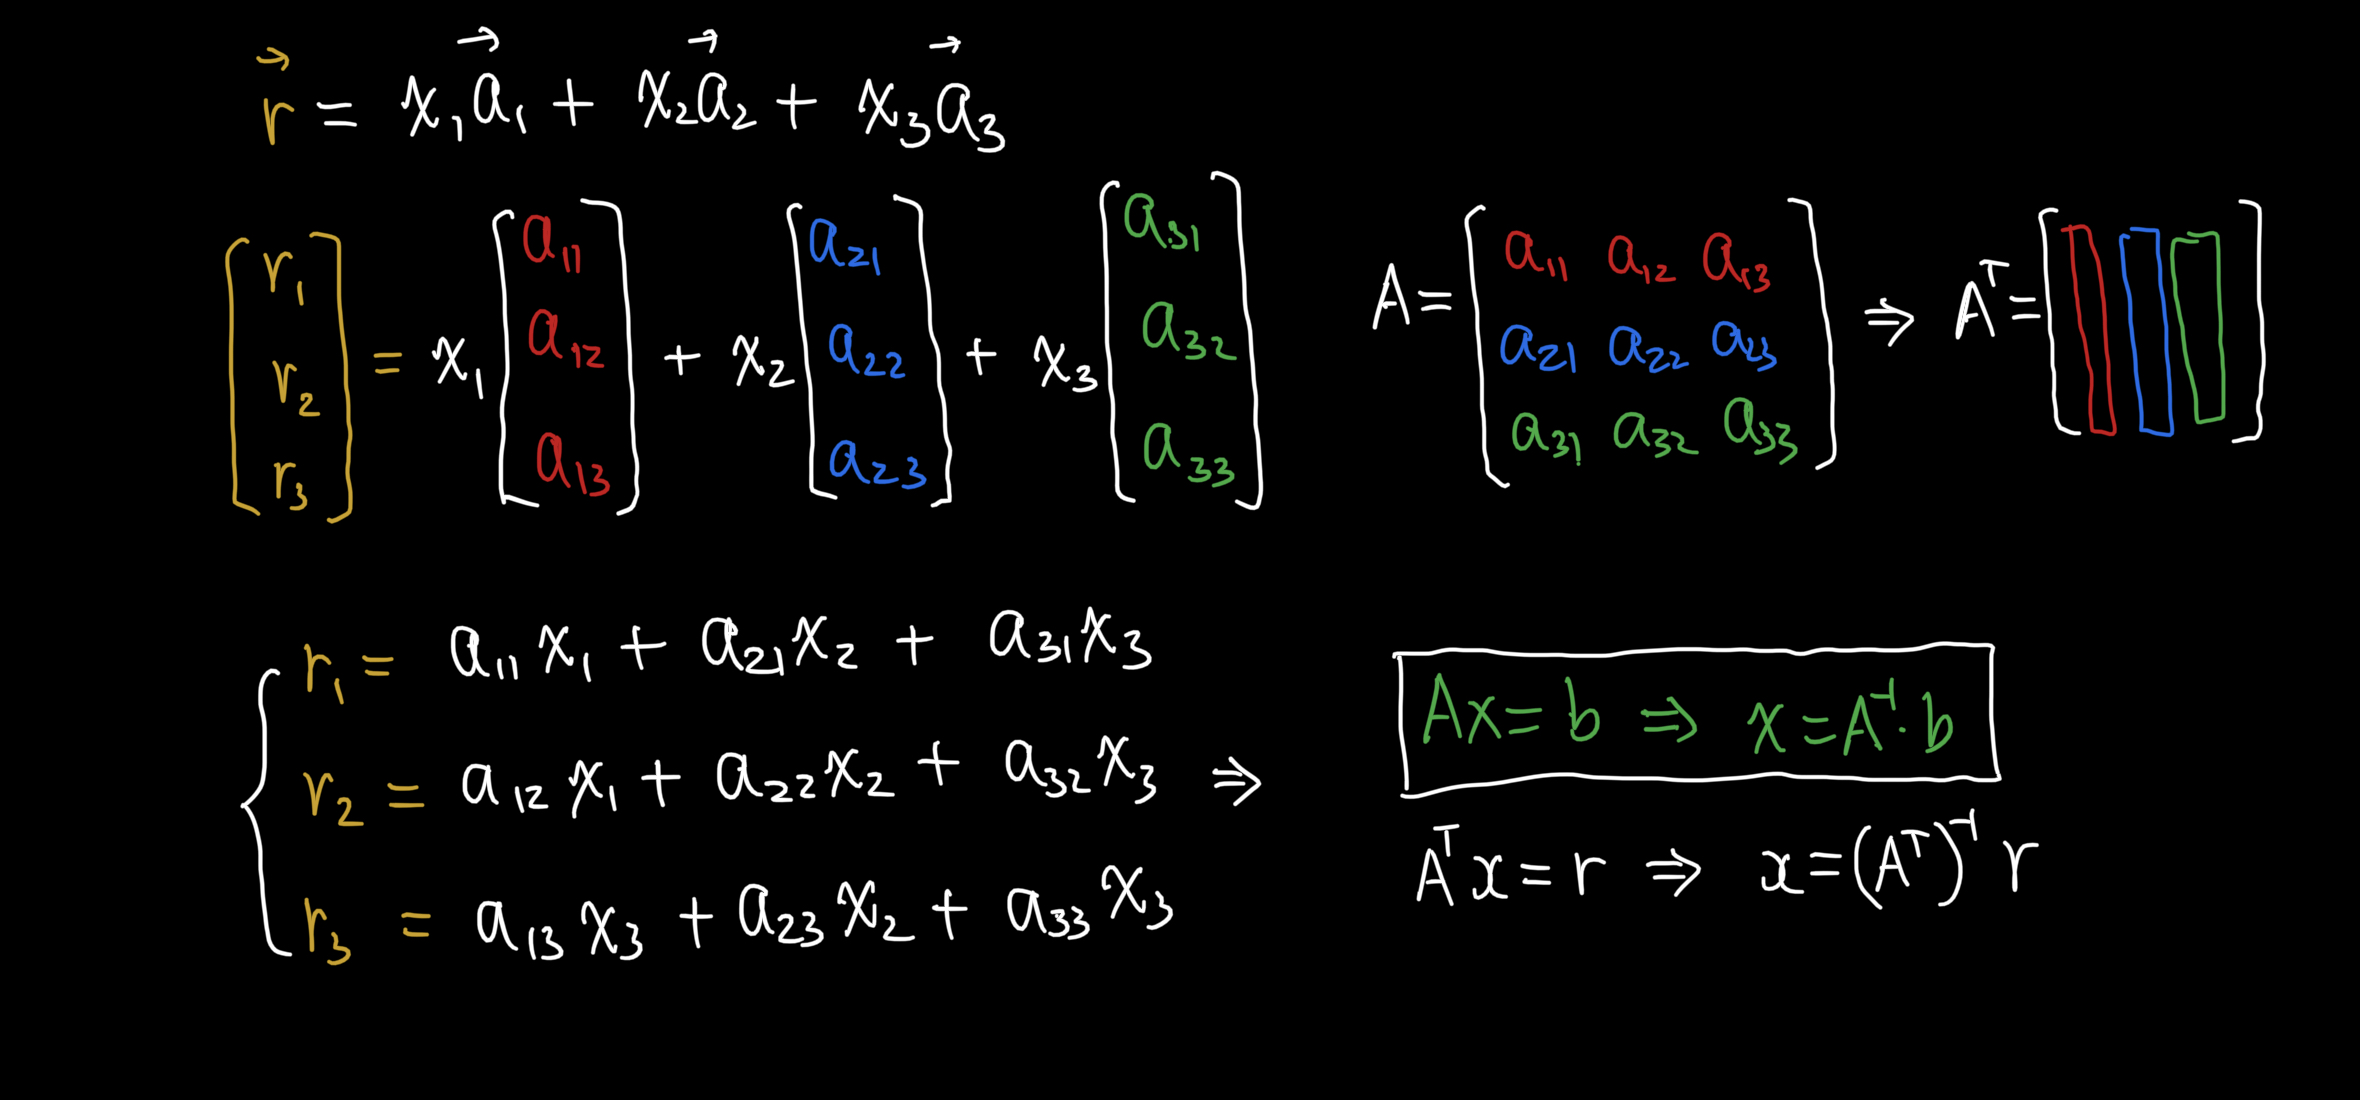 r⃗ = x₁a⃗₁ + x₂a⃗₂ + x₃a⃗₃
[r₁ r₂ r₃] = x₁ [a₁₁ a₁₂ a₁₃] + x₂ [a₂₁ a₂₂ a₂₃] + x₃ [a₃₁ a₃₂ a₃₃]
A = [a₁₁ a₁₂ a₁₃
a₂₁ a₂₂ a₂₃
a₃₁ a₃₂ a₃₃] ⇒ Aᵀ = [ ]
r₁ = a₁₁x₁ + a₂₁x₂ + a₃₁x₃
r₂ = a₁₂x₁ + a₂₂x₂ + a₃₂x₃ ⇒
r₃ = a₁₃x₃ + a₂₃x₂ + a₃₃x₃
Ax = b ⇒ x = A⁻¹·b
Aᵀx = r ⇒ x = (Aᵀ)⁻¹ r